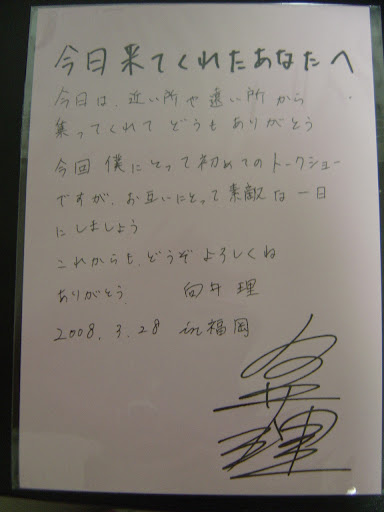 今日来てくれたあなたへ
今日は、近い所や遠い所から
集ってくれて どうもありがとう
今回 僕にとって初めてのトークショー
ですが、お互いにとって素敵な一日
にしましょう
これからも、どうぞ よろしくね
ありがとう。 向井 理
2008.3.28 in福岡
向井理